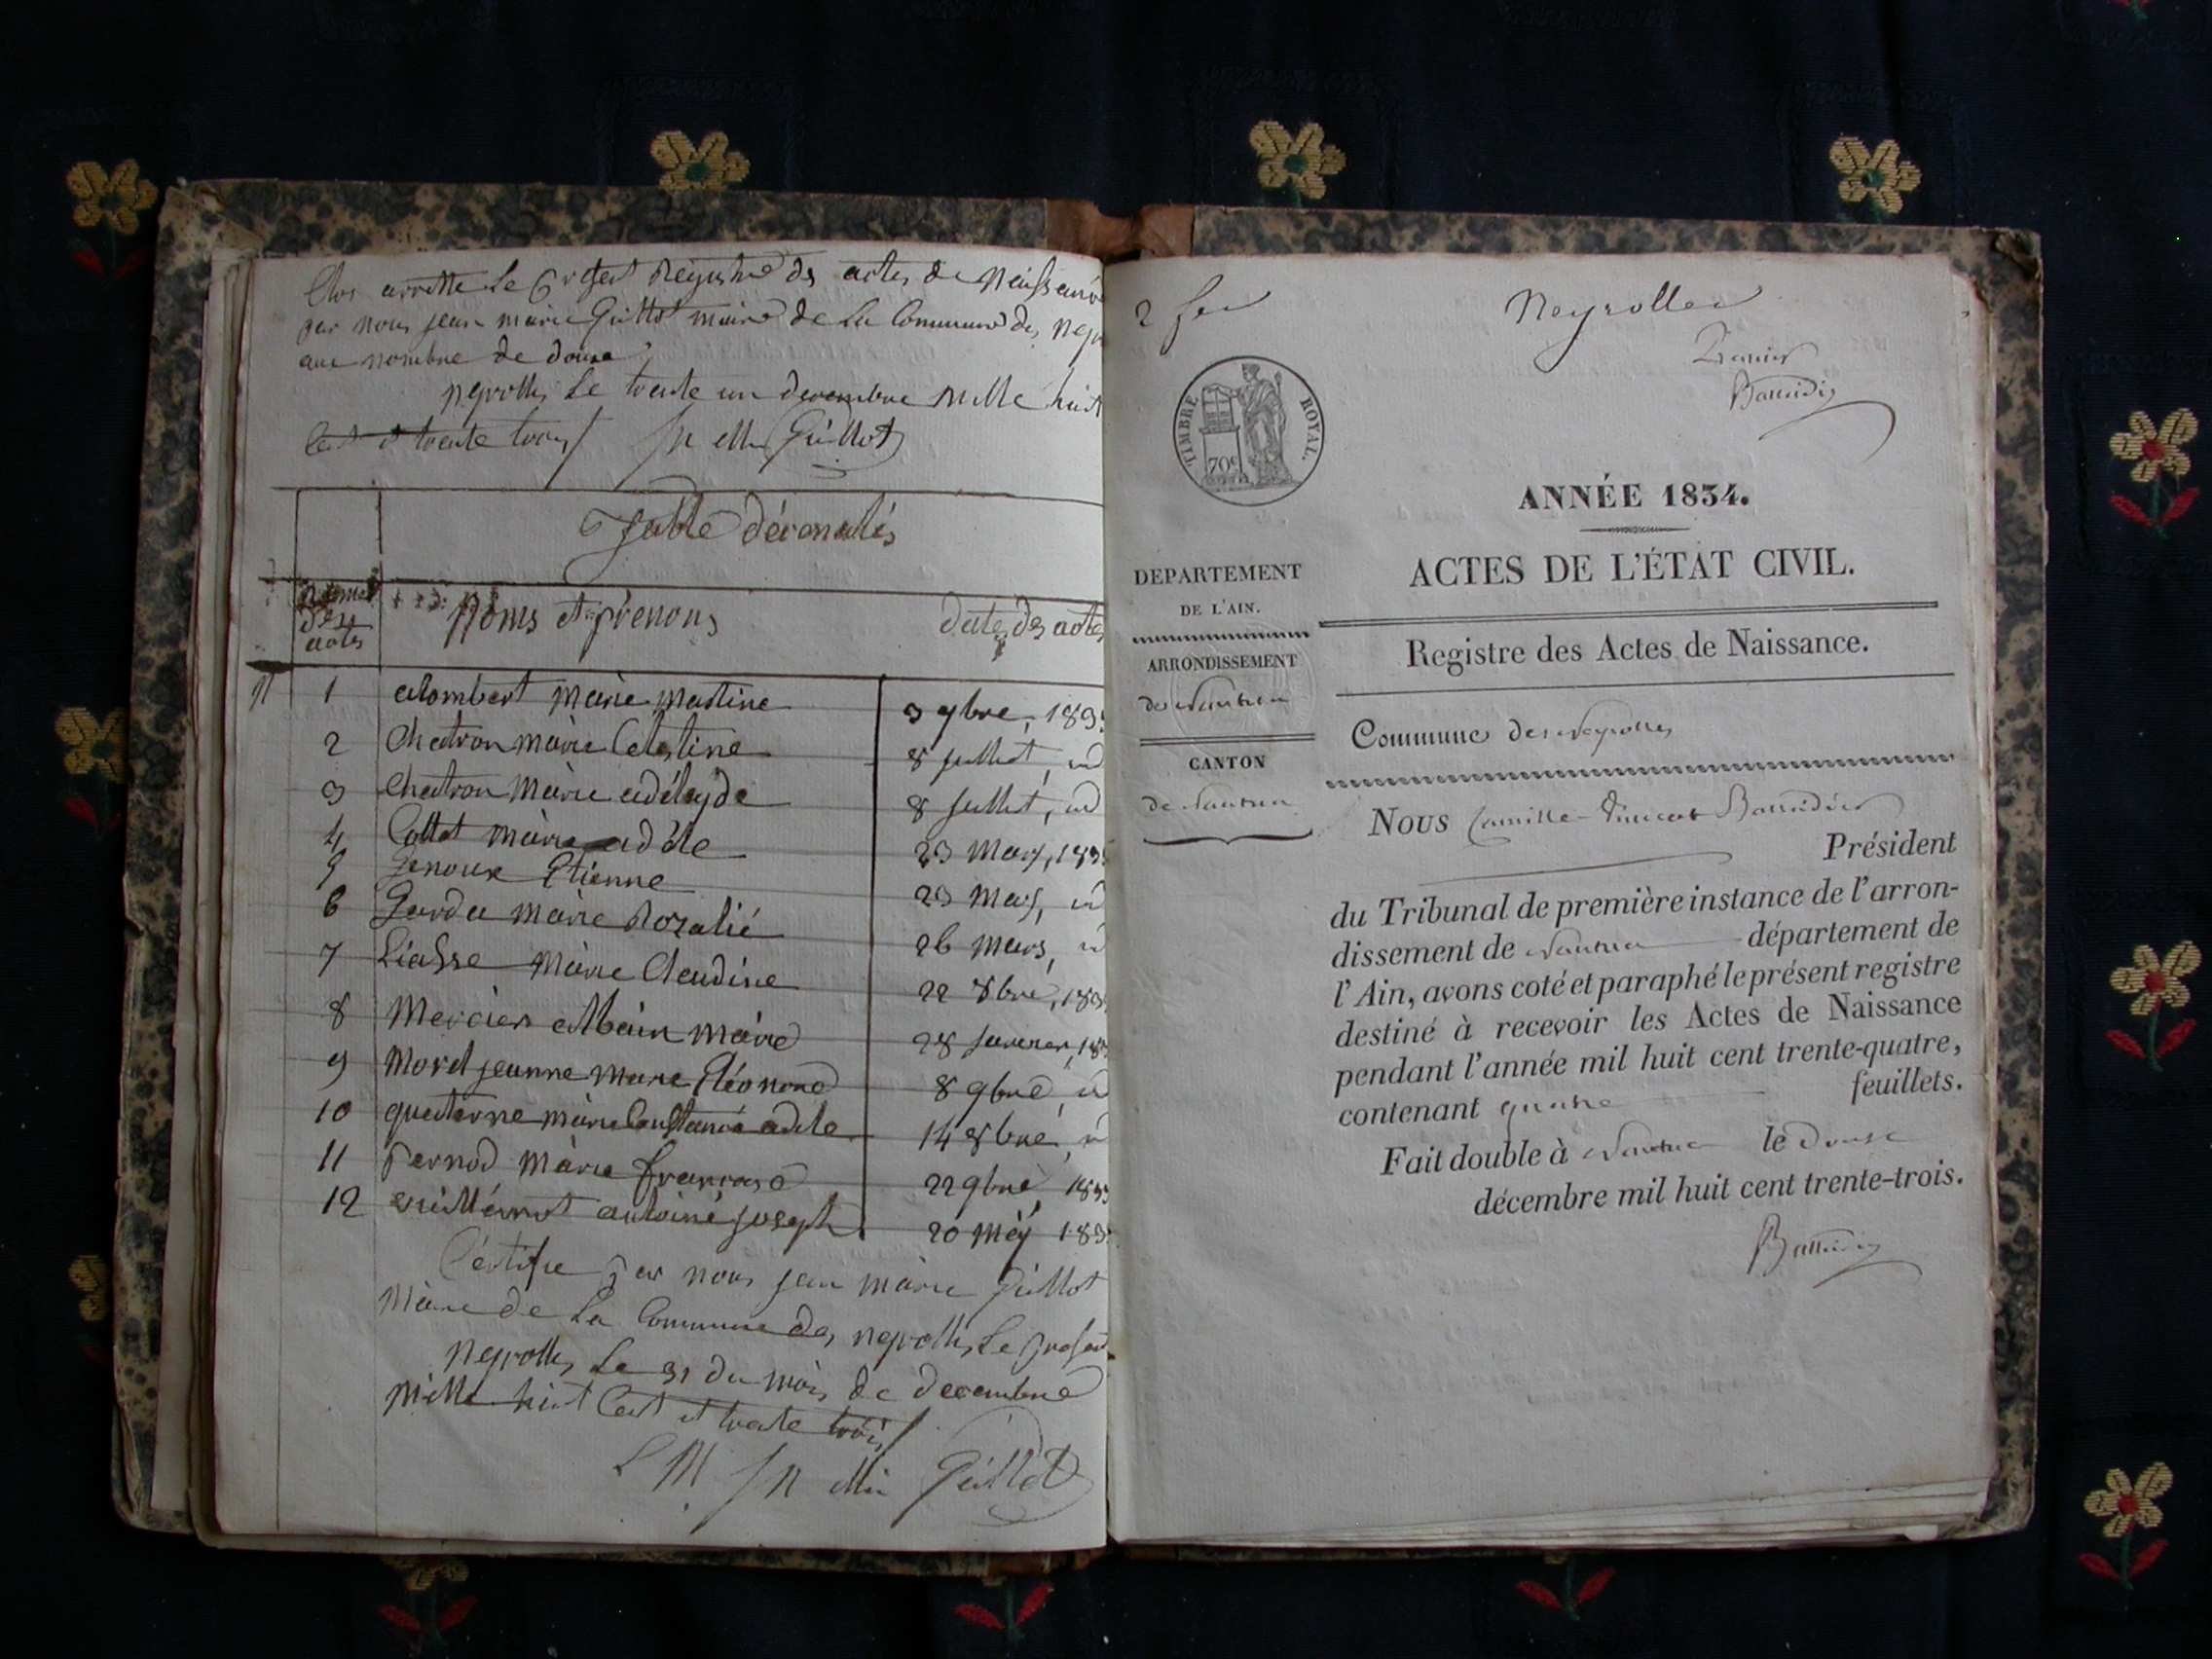 Clos arretté le present Registre des actes de Naissance
par nous jean marie Guillot maire de la Commune des neyr
au nombre de douze
neyrolles le trente un decembre mille huit
Cent et trente trois / Jn Mie Guillot
Table décenalès
des
actes
Noms et prénoms
dates des actes
N 1 alombert Marie Martine 3 9bre, 183
2 Chatron marie Celestine 8 juillet, id
3 Chatron Màrie adélayde 8 juillet, id
4 Collet màrie adéle 23 Mars, 183
5 Genoux Etienne 23 Mars, id
6 Garda màrie Rozalié 26 mars, id
7 Liasse Màrie Claudine 22 8bre, 183
8 Mercier Albain màrie 28 janvier, 183
9 Morel jeanne marie Eléonore 8 9bre, id
10 quaterne màrie Constance adéle 14 8bre, id
11 Pernod Màrie francoise 22 9bre, 1833
12 vuillérmot antoine joseph 20 Mey 183
Certifie par nous jean màrie Guillot
Màire de La Commune des neyrolles Le present
Neyrolles Le 31 du mois de decembre
Mille huit Cent et trente trois /
Jn Mie Guillot
2 feu
Neyrolles
Premier
Baudin
TIMBRE ROYAL.
70c
ANNÉE 1834.
ACTES DE L'ÉTAT CIVIL.
DEPARTEMENT
DE L'AIN.
Registre des Actes de Naissance.
ARRONDISSEMENT
de Nantua
Commune des Neyrolles
CANTON
de Nantua
Nous Camille-Vincent
Président
du Tribunal de première instance de l'arron-
dissement de Nantua département de
l'Ain, avons coté et paraphé le présent registre
destiné à recevoir les Actes de Naissance
pendant l'année mil huit cent trente-quatre,
contenant quatre feuillets.
Fait double à Nantua le douze
décembre mil huit cent trente-trois.